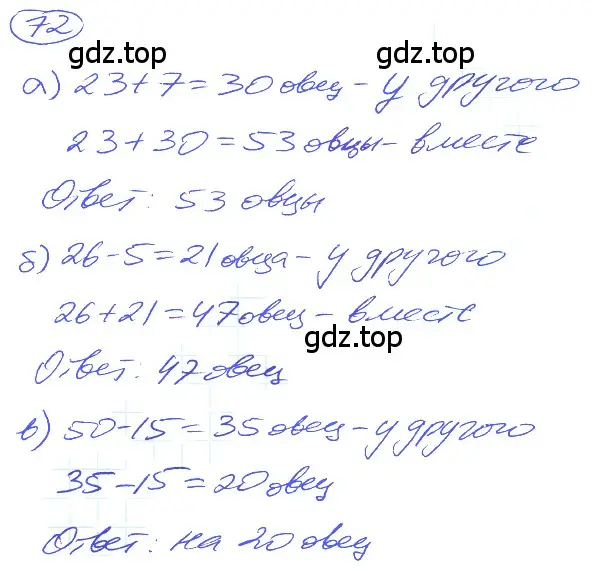 72
gdz.top
gdz.top
а) 23+7=30 овец - у другого
23+30=53 овцы - вместе
Ответ: 53 овцы
б) 26-5=21 овца - у другого
26+21=47 овец - вместе
gdz.top
Ответ: 47 овец
в) 50-15=35 овец - у другого
35-15=20 овец
Ответ: на 20 овец